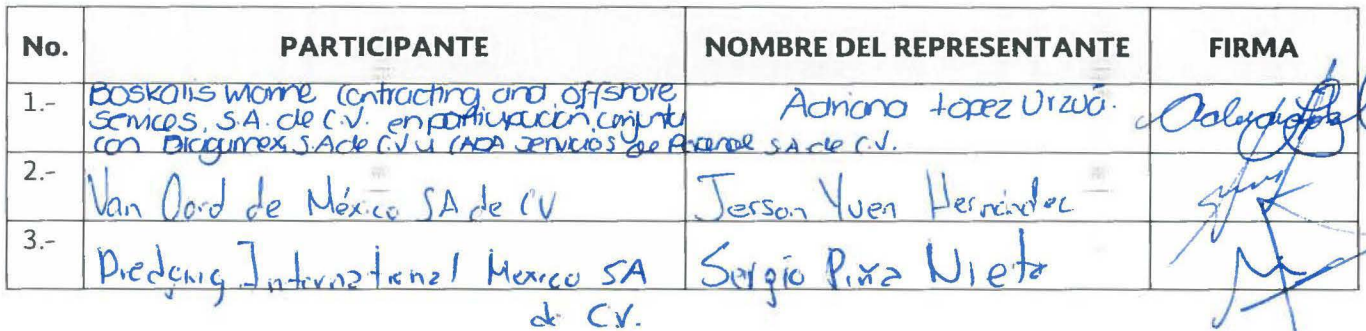 No. PARTICIPANTE NOMBRE DEL REPRESENTANTE FIRMA
1.- Boskalis Marine Contracting and offshore Adriana Lopez Urzua.
Services, S.A. de C.V. en participación conjunta
con Dragamex S.A de C.V y CADA Servicios de Personal S.A de C.V.
2.- Van Oord de México SA de CV Jerson Yuen Hernández
3.- Dredging International Mexico SA Sergio Piña Nieto
de C.V.